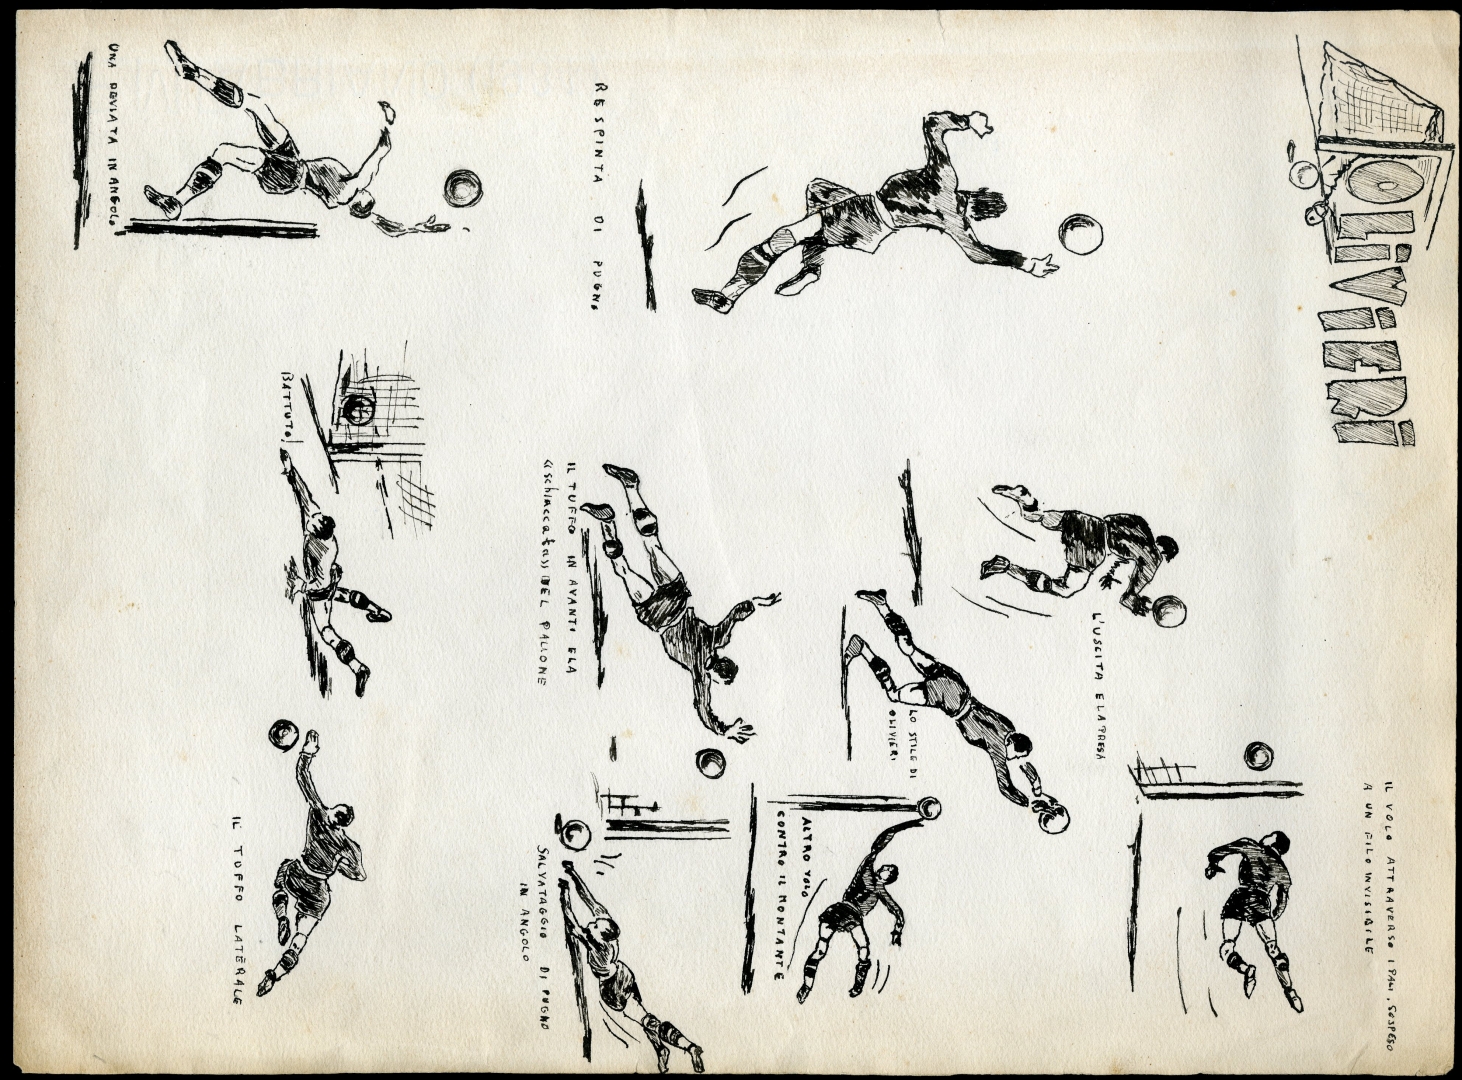 OLIVIERI
IL VOLO ATTRAVERSO I PALI, SOSPESO
A UN FILO INVISIBILE
L'USCITA E LA PRESA
LO STILE DI
OLIVIERI
ALTRO VOLO
CONTRO IL MONTANTE
RESPINTA DI PUGNO
IL TUFFO IN AVANTI E LA
"schiacciata" DEL PALLONE
SALVATAGGIO DI PUGNO
IN ANGOLO
BATTUTO!
IL TUFFO LATERALE
UNA DEVIATA IN ANGOLO